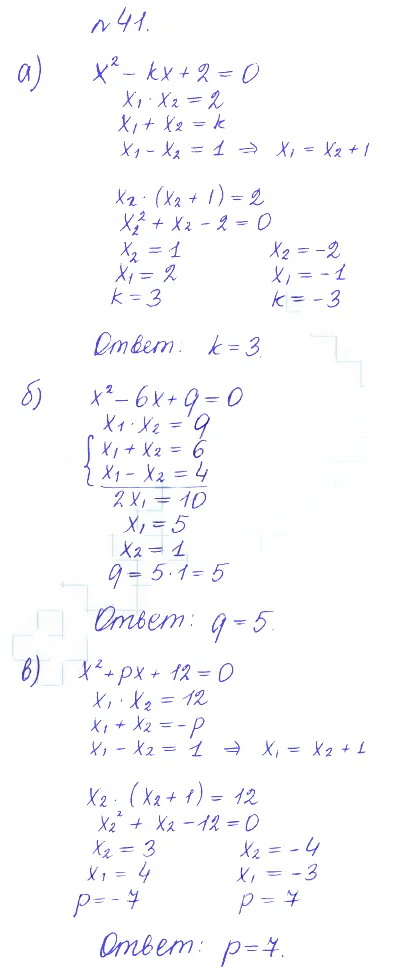 №41.
а) x² - kx + 2 = 0
x₁ · x₂ = 2
x₁ + x₂ = k
x₁ - x₂ = 1 ⇒ x₁ = x₂ + 1
x₂ · (x₂ + 1) = 2
x₂² + x₂ - 2 = 0
x₂ = 1 x₂ = -2
x₁ = 2 x₁ = -1
k = 3 k = -3
Ответ: k = 3.
б) x² - 6x + q = 0
x₁ · x₂ = q
{ x₁ + x₂ = 6
x₁ - x₂ = 4
2x₁ = 10
x₁ = 5
x₂ = 1
q = 5 · 1 = 5
Ответ: q = 5.
в) x² + px + 12 = 0
x₁ · x₂ = 12
x₁ + x₂ = -p
x₁ - x₂ = 1 ⇒ x₁ = x₂ + 1
x₂ · (x₂ + 1) = 12
x₂² + x₂ - 12 = 0
x₂ = 3 x₂ = -4
x₁ = 4 x₁ = -3
p = -7 p = 7
Ответ: p = 7.